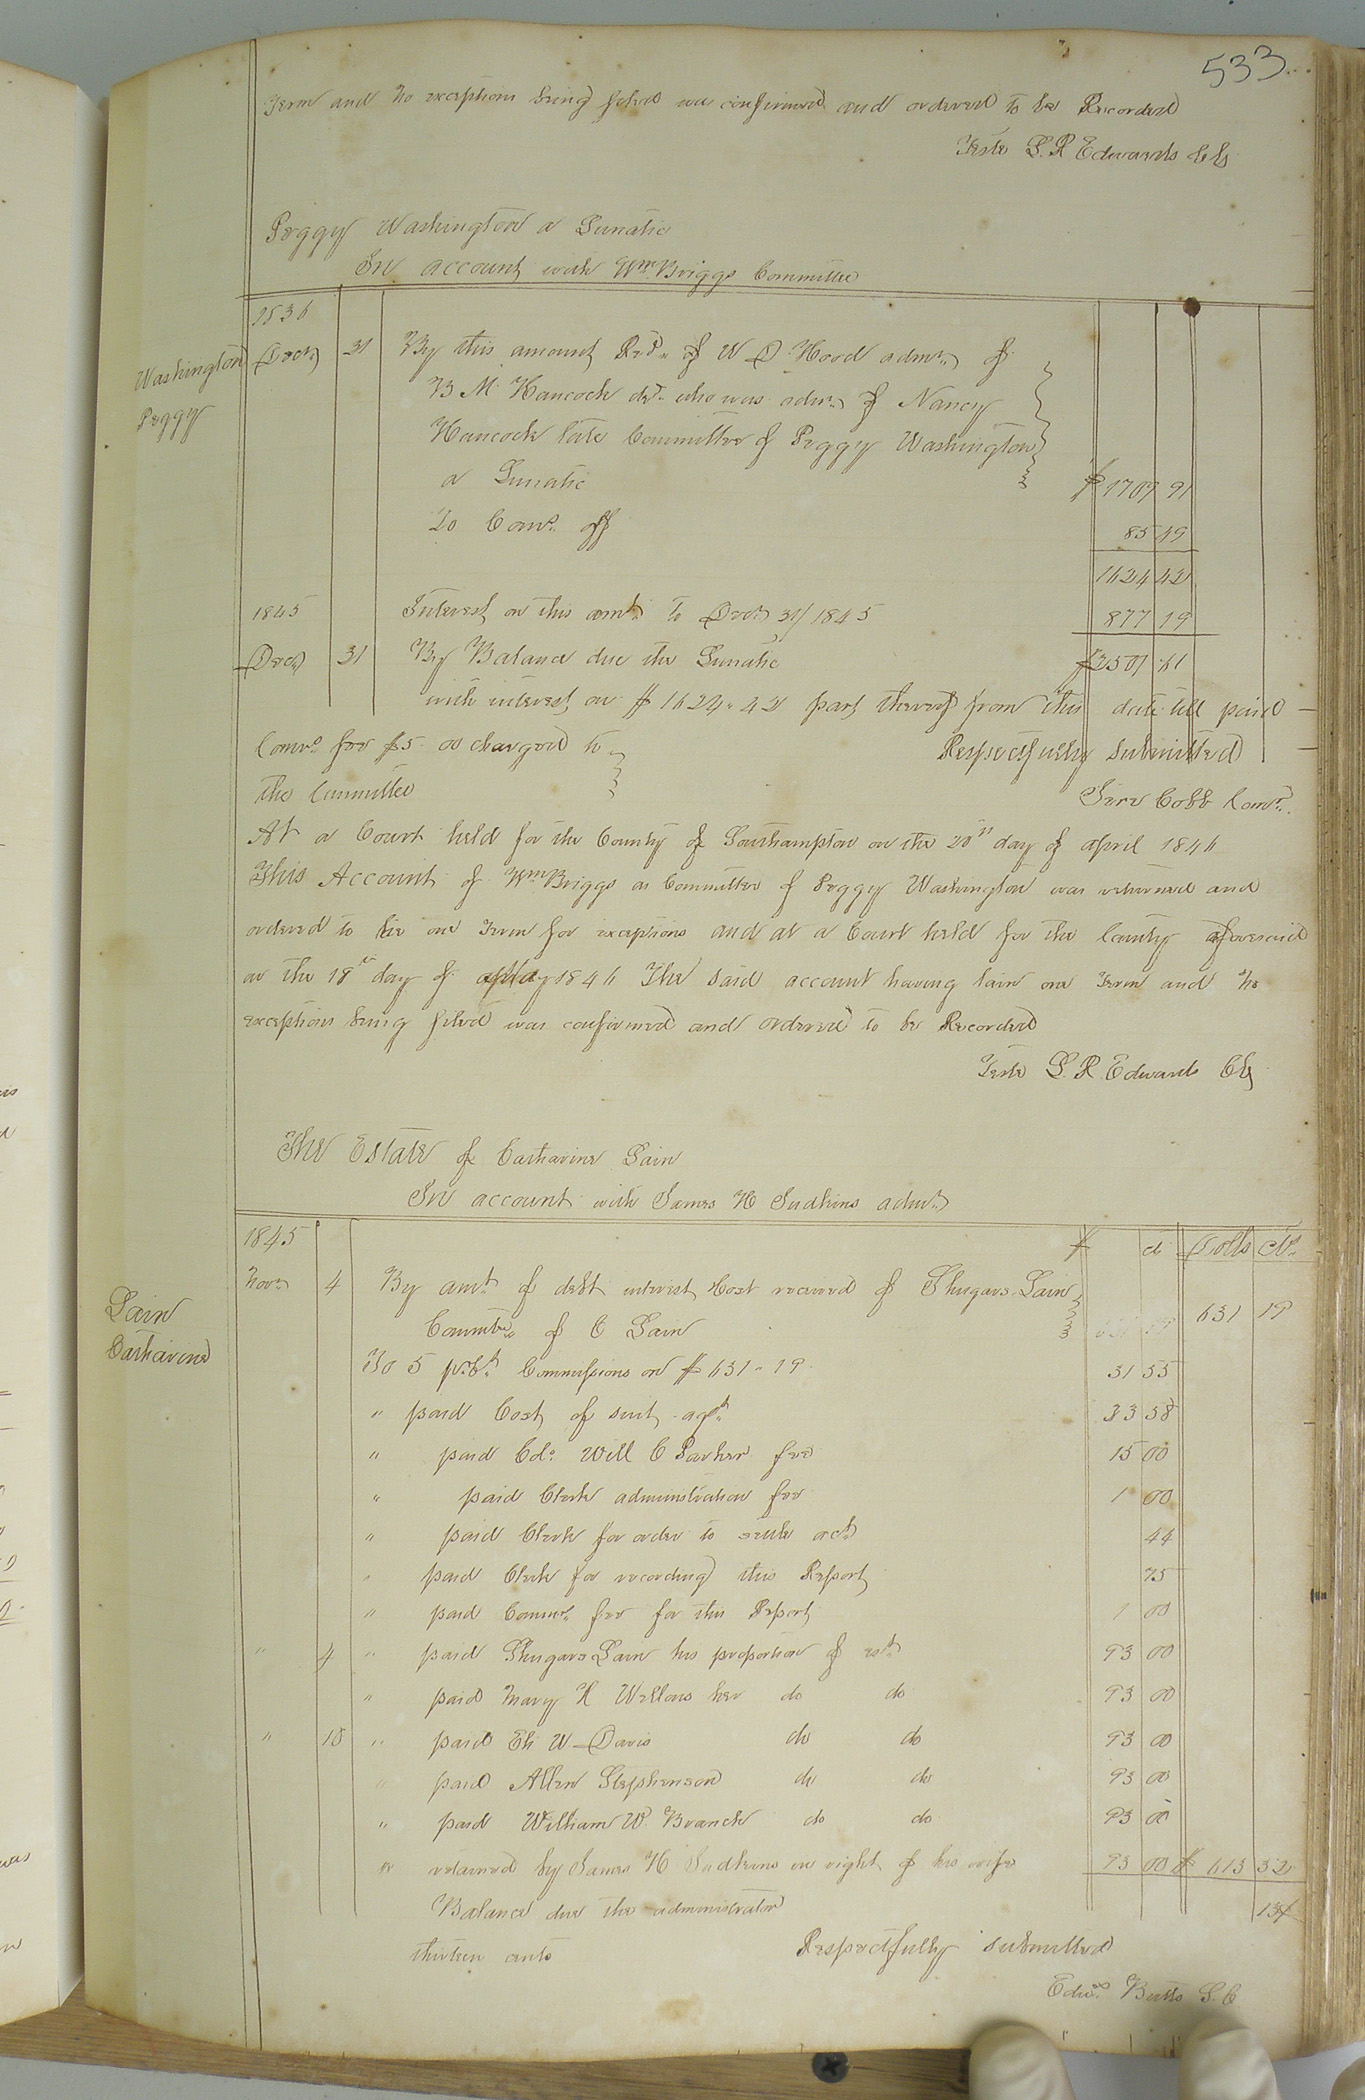 533
Term and no exceptions being filed was confirmed and ordered to be Recorded
Teste L. R Edwards Clk
Peggy Washington a Lunatic
In account with Wm Briggs Committee
1836
Washington
Peggy
Decr 31 By this amount Recd of W D Hood admr of
B M Hancock decd who was admr of Nancy
Hancock late Committee of Peggy Washington
a Lunatic $1709 91
To Comr off 85 49
1624 42
1845 Interest on this amt to Decr 31/1845 877 19
Decr 31 By Balance due the Lunatic $2501 61
with interest on $1624.42 part thereof from this date till paid
Comrs fee $5.00 charged to Respectfully submitted
the Committee Jere Cobb Comr.
At a Court held for the County of Southampton on the 20th day of April 1846
This Account of Wm Briggs as Committee of Peggy Washington was returned and
ordered to lie one Term for exceptions and at a Court held for the County aforesaid
on the 18th day of May 1846 The said account having lain one Term and no
exceptions being filed was confirmed and ordered to be Recorded
Teste L. R. Edwards Clk
The Estate of Catharine Lain
In account with James H Judkins admr
1845 $ ct Dolls cts
Lain
Catharine
Novr 4 By amt of debt interest Cost received of Shugars Lain
Committee of C Lain 631 19
To 5 pr Ct Commissions on $631.19 31 55
" paid Cost of suit agst 33 58
" paid Col. Will C Parker fee 15 00
" paid Clerk administration fee 1 00
" paid Clerk for order to settle act 44
" paid Clerk for recording this Report 75
" paid Commr fee for this Report 1 00
" 4 " paid Shugars Lain his proportion of est 93 00
" paid Mary R Wellons her do do 93 00
" 18 " paid Eli W Davis do do 93 00
" paid Allen Stephenson do do 93 00
" paid William W. Branch do do 93 00
" retained by James H Judkins in right of his wife 93 00 $ 613 32
Balance due the administrator 13
thirteen cents Respectfully submitted
Edwd Butts S. C